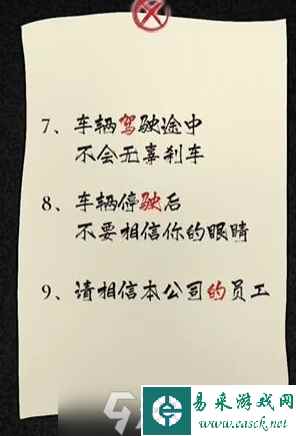 7、车辆驾驶途中
不会无辜刹车
8、车辆停驶后
不要相信你的眼睛
9、请相信本公司的员工
易采游戏网
www.easck.net